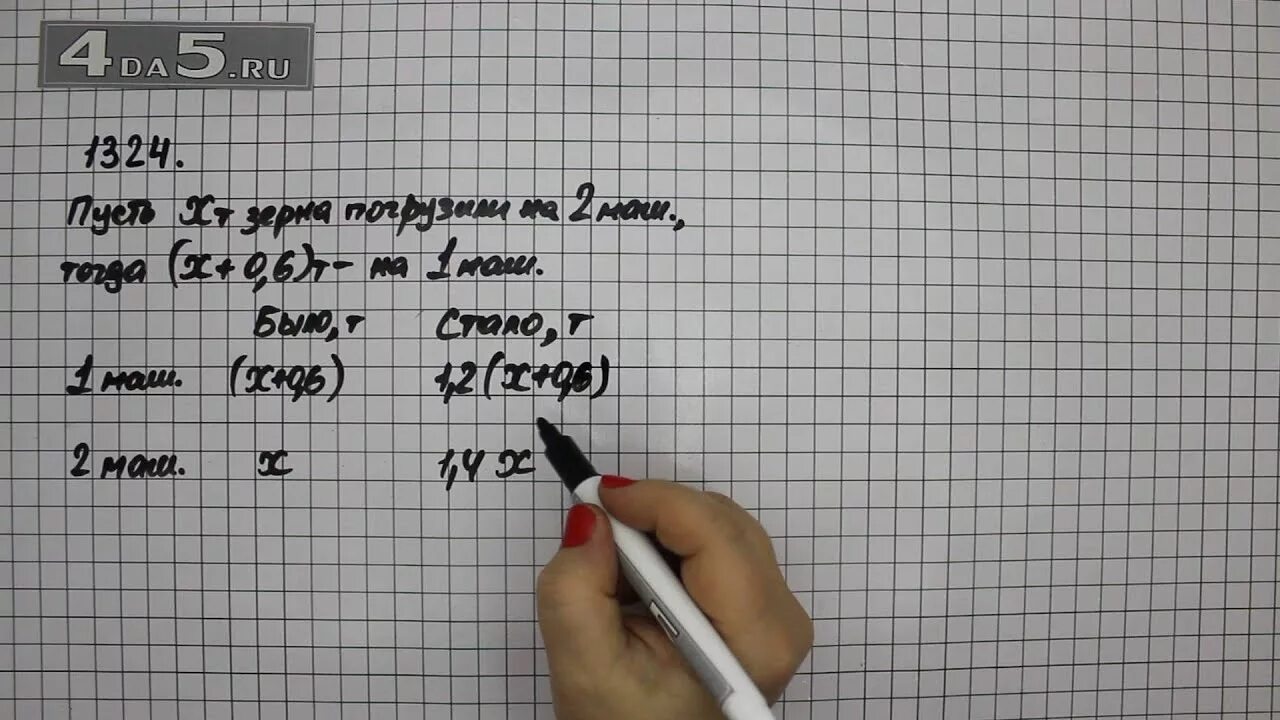 4DA5.RU
1324.
Пусть х т зерна погрузили на 2 маш.,
тогда (х + 0,6) т - на 1 маш.
Было, т Стало, т
1 маш. (х+0,6) 1,2 (х+0,6)
2 маш. х 1,4 х